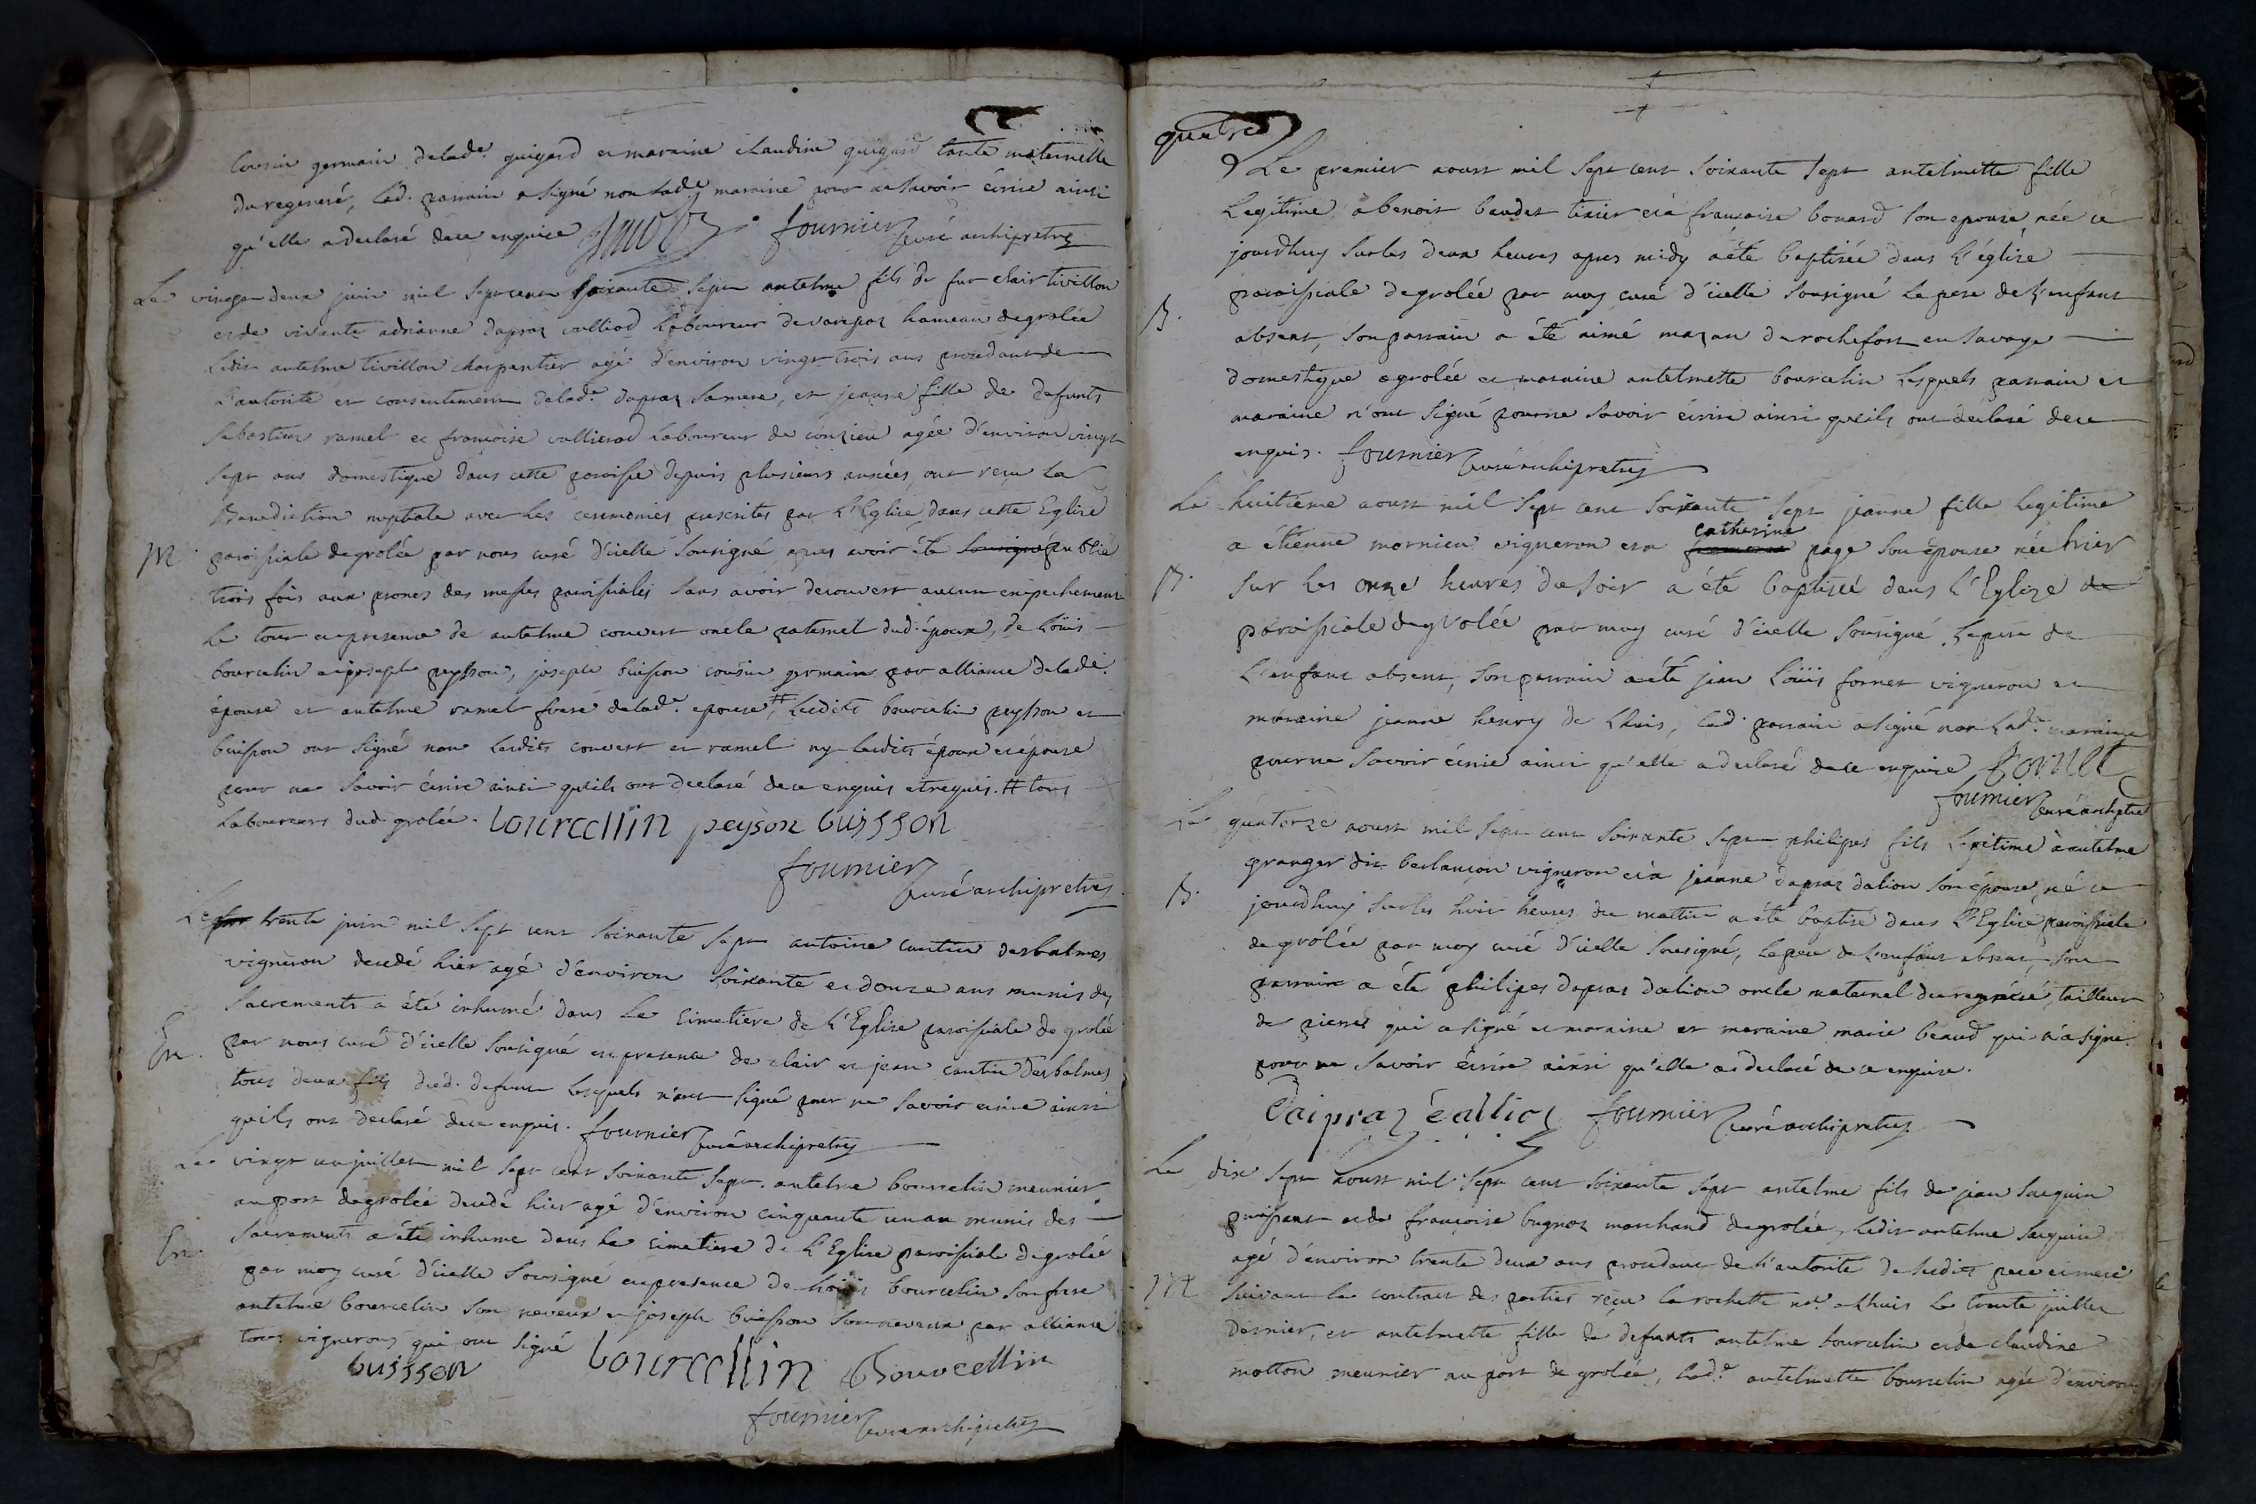 Cousin germain delade. guigard et maraine claudine guigard tante maternelle
du regeneré, led. parrain a signé non lade maraine pour ne savoir écrire ainsi
qu'elle a declaré de ce enquise fournier curé archipretre
Le vingt deux juin mil sept cent soixante sept antelme fils de fut clair tivillon
et de vivante adrianne dapraz valliod Laboureur de hameau de grolée
Ledit antelme tivillon charpentier agé d'environ vingt trois ans procedant de
L'autorité et consentement delade. dapraz sa mere, et jeanne fille de defunts
Sebastien ramel et françoise vallierod Laboureur de conzieu agée d'environ vingt
sept ans domestique dans cette paroisse depuis plusieurs années, ont reçu la
Benediction nuptiale avec les ceremonies prescrites par L'Eglise dans cette Eglise
M paroissiale de grolée par nous curé d'icelle sousigné apres avoir été sousigné publié
trois fois aux prones des messes paroissiales sans avoir decouvert aucun empechement
Le tout en presence de antelme convert oncle paternel dud. époux, de Loüis
bourcelin et joseph peysson, joseph buisson cousin germain par alliance delade.
épouse et antelme ramel frere delade. epouse, # Lesdits bourcelin peysson et
buisson ont signé non lesdits convert et ramel ny lesdits époux et épouse
pour ne savoir écrire ainsi qu'ils ont declaré de ce enquis et requis. # tous
Laboureurs dud. grolée. bourcellin peyson buisson
fournier curé archipretre
Le trente juin mil sept cent soixante sept antoine cantin desbalmes
vigneron decedé hier agé d'environ soixante et douze ans munis des
sacrements a été inhumé dans le cimetiere de L'Eglise paroissiale de grolée
En. par nous curé d'icelle sousigné en presence de clair et jean cantin desbalmes
tous deux fils dud. defunt lesquels n'ont signé pour ne savoir écrire ainsi
qu'ils ont declaré de ce enquis. fournier curé archipretre
Le vingt un juillet mil sept cent soixante sept antelme bourcelin meunier
au port de grolée decedé hier agé d'environ cinquante un an munis des
En. sacrements a été inhumé dans le cimetiere de L'Eglise paroissiale de grolée
par moy curé d'icelle sousigné en presence de Loüis bourcelin son frere
antelme bourcelin son neveux et joseph buisson son neveux par alliance
tous vignerons qui ont signé
buisson bourcellin Bourcellin
fournier curé archipretre
quatre
Le premier aoust mil sept cent soixante sept antelmette fille
Legitime à benoit baudet tixier et à françoise bonard son epouse née ce
jourdhuy sur les deux heures apres midy a été baptisée dans L'église
paroissiale de grolée par moy curé d'icelle sousigné le pere de L'enfant
B. absent, son parrain a été aimé mazan de rochefort en savoye
domestique a grolée et maraine antelmette bourcelin lesquels parrain et
maraine n'ont signé pour ne savoir écrire ainsi qu'ils ont declaré de ce
enquis. fournier curé archipretre
Le huitieme aoust mil sept cent soixante sept jeanne fille legitime
catherine
a étienne mornieu vigneron et a page son épouse née hier
B. sur les onze heures du soir a été baptisée dans L'Eglize de
paroissiale de grolée par moy curé d'icelle sousigné le pere de
L'enfant absent, son parrain a été jean Loüis fornet vigneron et
maraine jeanne henry de Lhuis, led. parrain a signé non lade. maraine
pour ne savoir écrire ainsi qu'elle a declaré de ce enquise fornet
fournier curé archiptre
Le quatorze aoust mil sept cent soixante sept philipes fils legitime à antelme
granger dit berlançon vigneron et à jeanne dapraz dalion son épouse, né ce
B. jourdhuy sur les huit heures du mattin a été baptisé dans L'Eglise paroissiale
de grolée par moy curé d'icelle sousigné, le pere de L'enfant absent, son
parrain a été philipes dapraz dalion oncle maternel du regeneré, tailleur
de pierres qui a signé et maraine et maraine marie beaud qui n'a signé
pour ne savoir écrire ainsi qu'elle a declaré de ce enquise.
fournier curé archipretre
Le dix sept aoust mil sept cent soixante sept antelme fils de jean seguin
puissant et de françoise bugnoz marchand de grolée, ledit antelme seguin
agé d'environ trente deux ans procedant de l'autorité desdits pere et mere
M suivant le contract des parties reçu larochette nre. a Lhuis le trente juillet
dernier, et antelmette fille de defunts antelme bourcelin et de claudine
motton meunier au port de grolée, lade. antelmette bourcelin agée d'environ